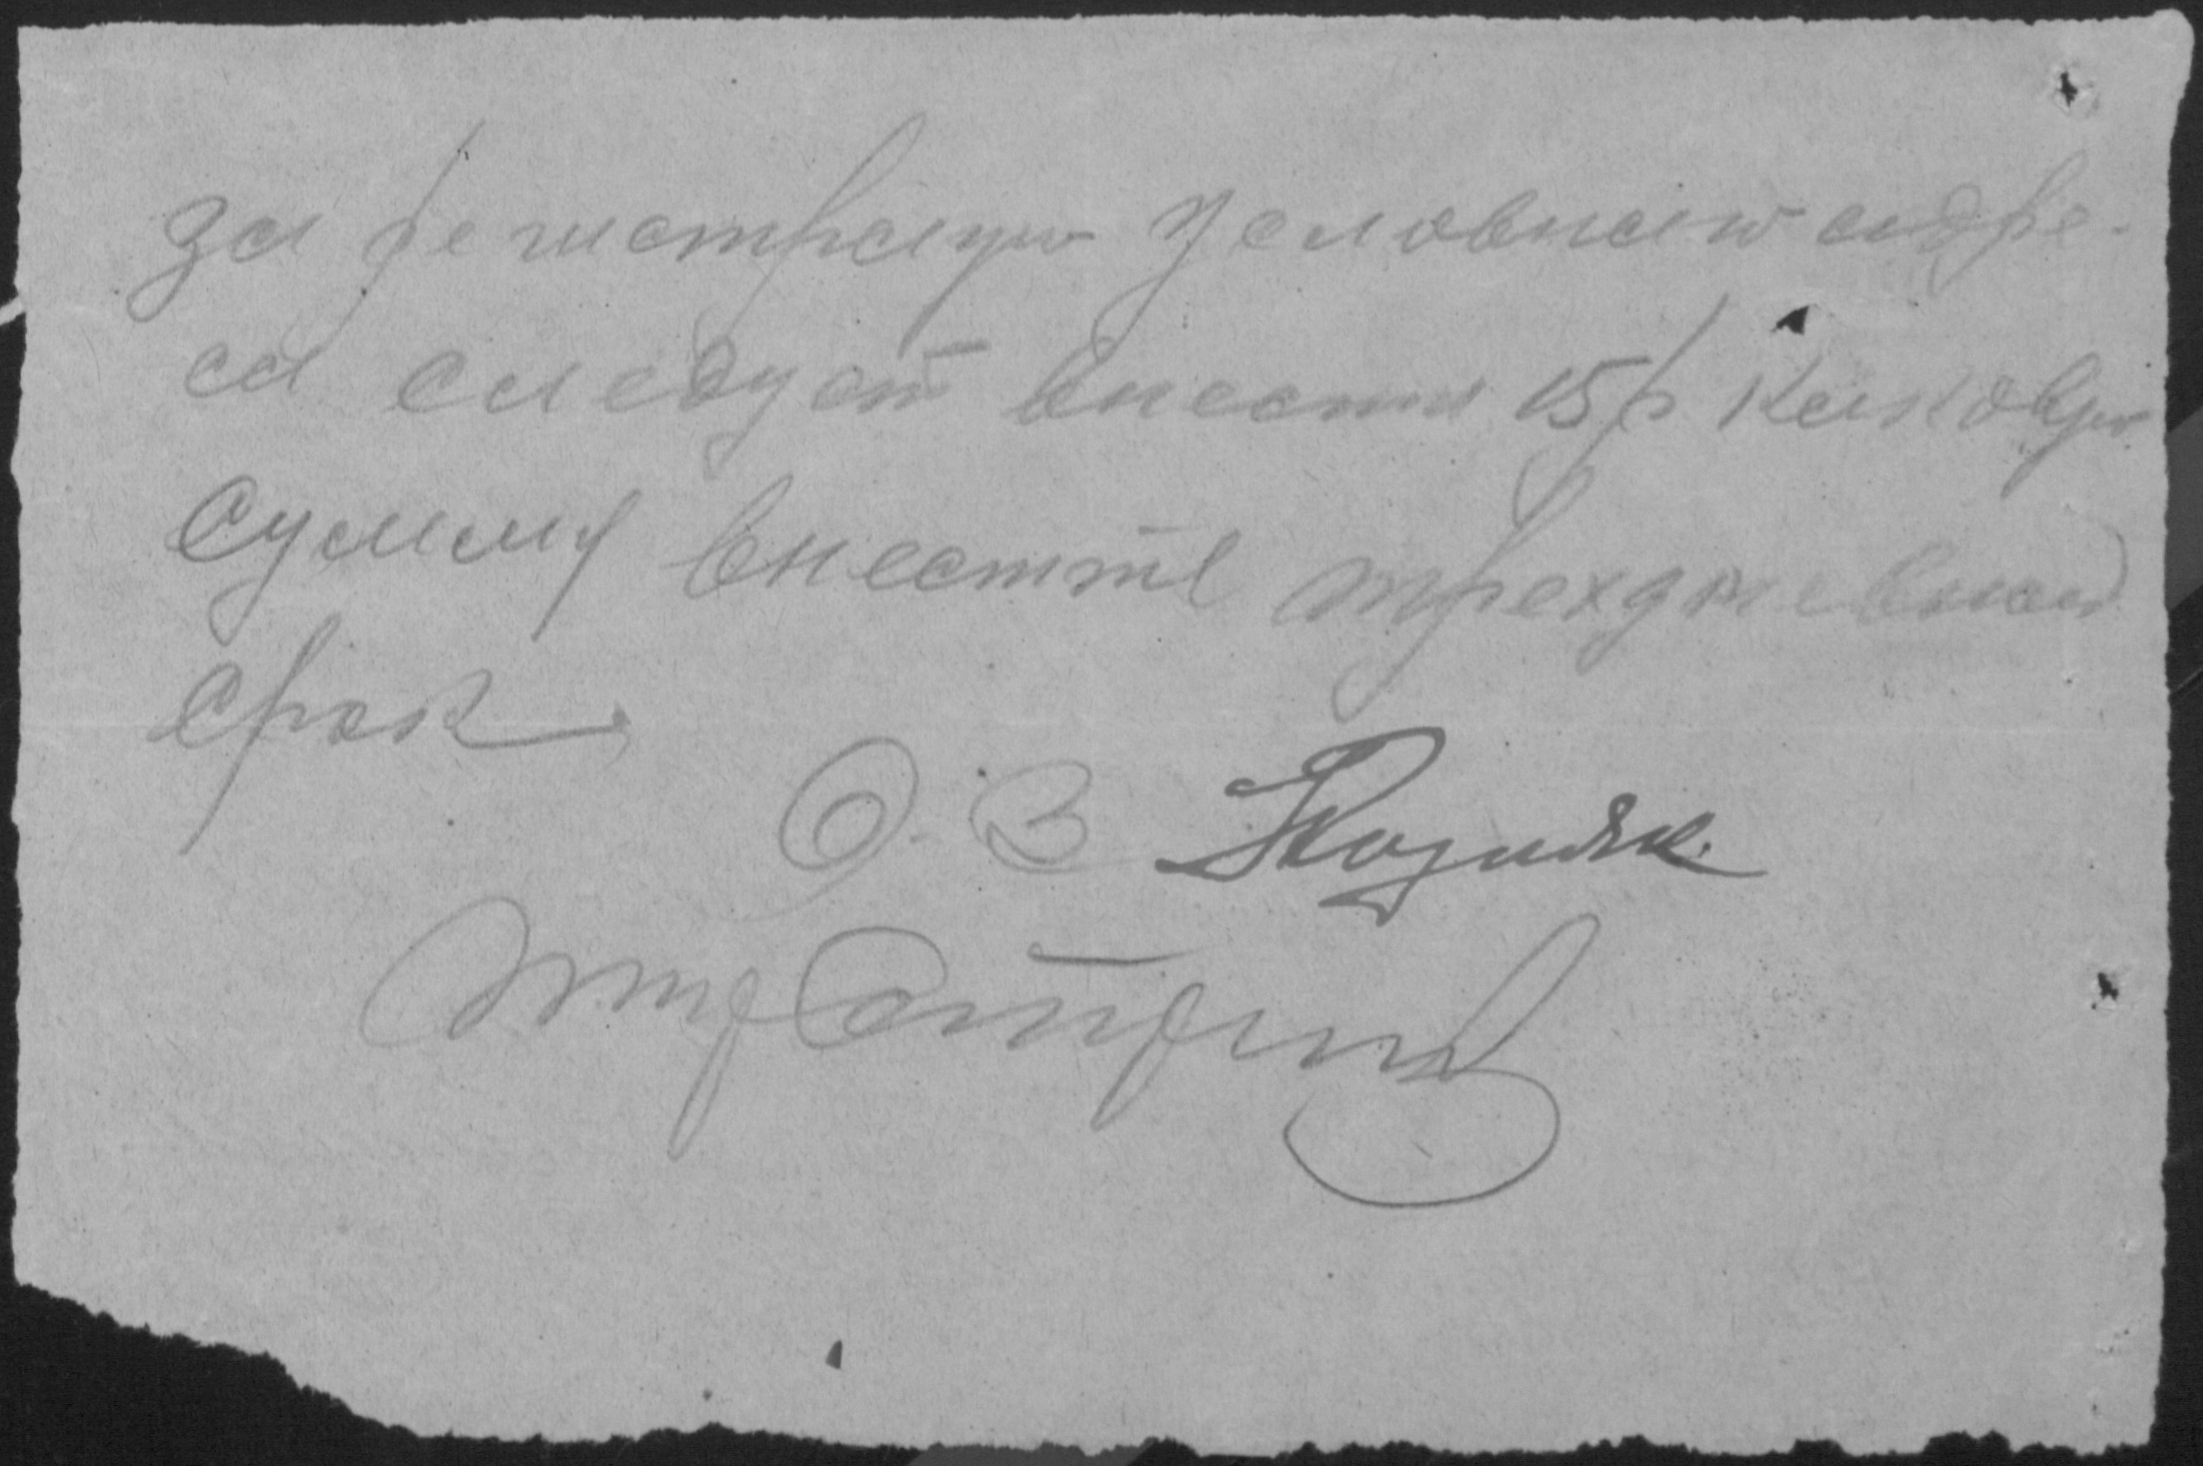 за регистрацию условного адре-
са следует внести 15 р каковую
сумму внести в трехдневный
срок
О. З Козляк.